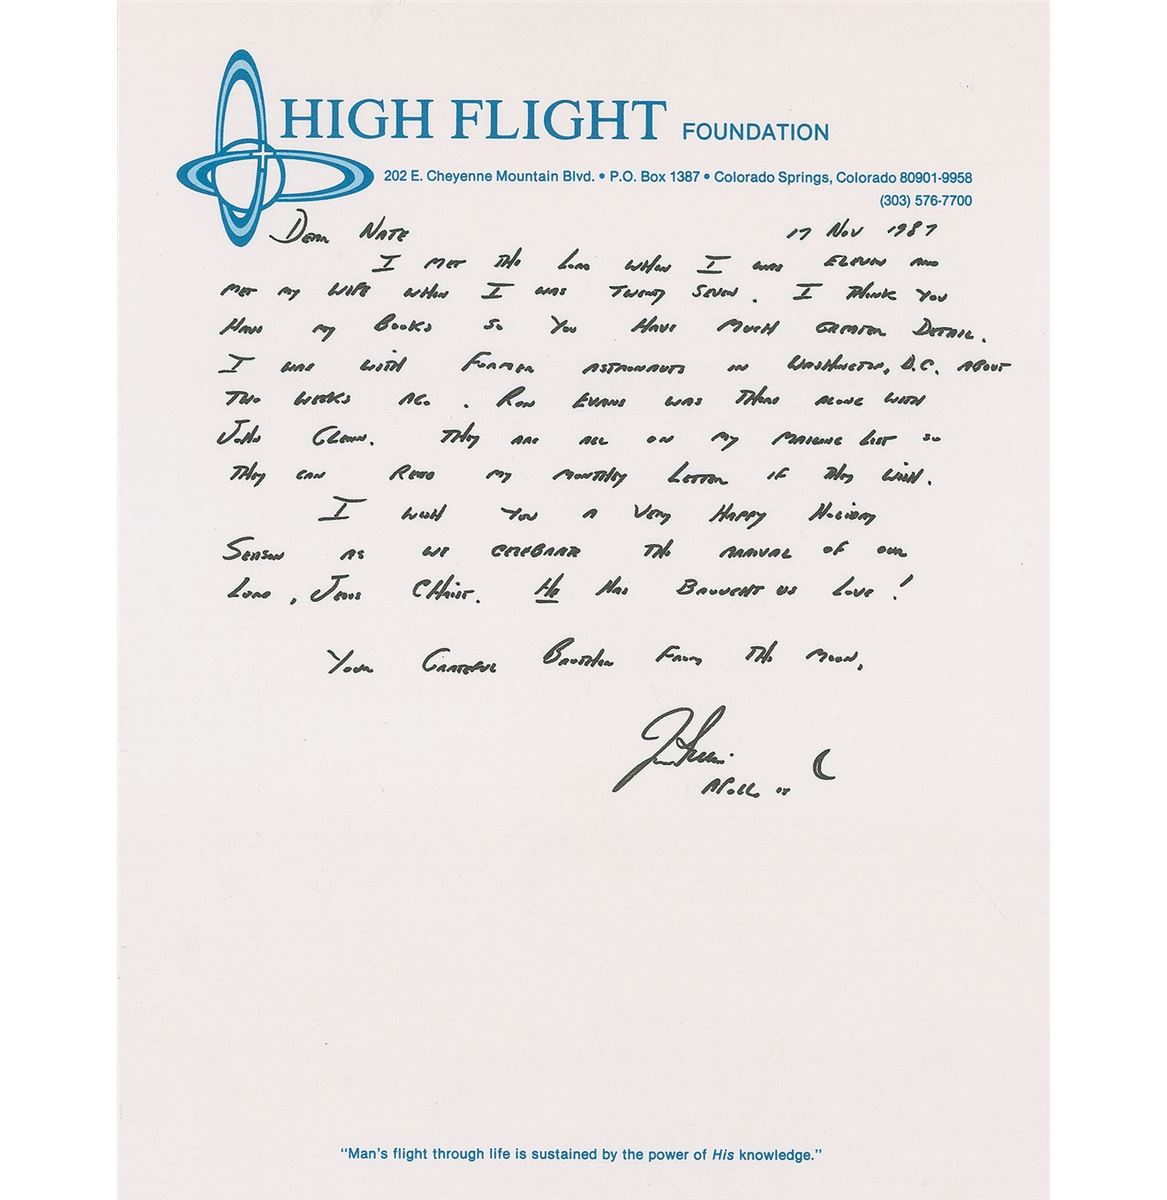 HIGH FLIGHT FOUNDATION
202 E. Cheyenne Mountain Blvd. • P.O. Box 1387 • Colorado Springs, Colorado 80901-9958
(303) 576-7700
Dear Nate 17 Nov 1987
I met the Lord when I was eleven and
met my wife when I was twenty seven. I think you
have my books so you have much greater detail.
I was with former astronauts in Washington, D.C. about
two weeks ago. Ron Evans was there along with
John Glenn. They are all on my mailing list so
they can read my monthly letter if they wish.
I wish you a very happy holiday
season as we celebrate the arrival of our
Lord, Jesus Christ. He has brought us love!
Your grateful brother from the moon,
Jim Irwin
Apollo 15
"Man's flight through life is sustained by the power of His knowledge."